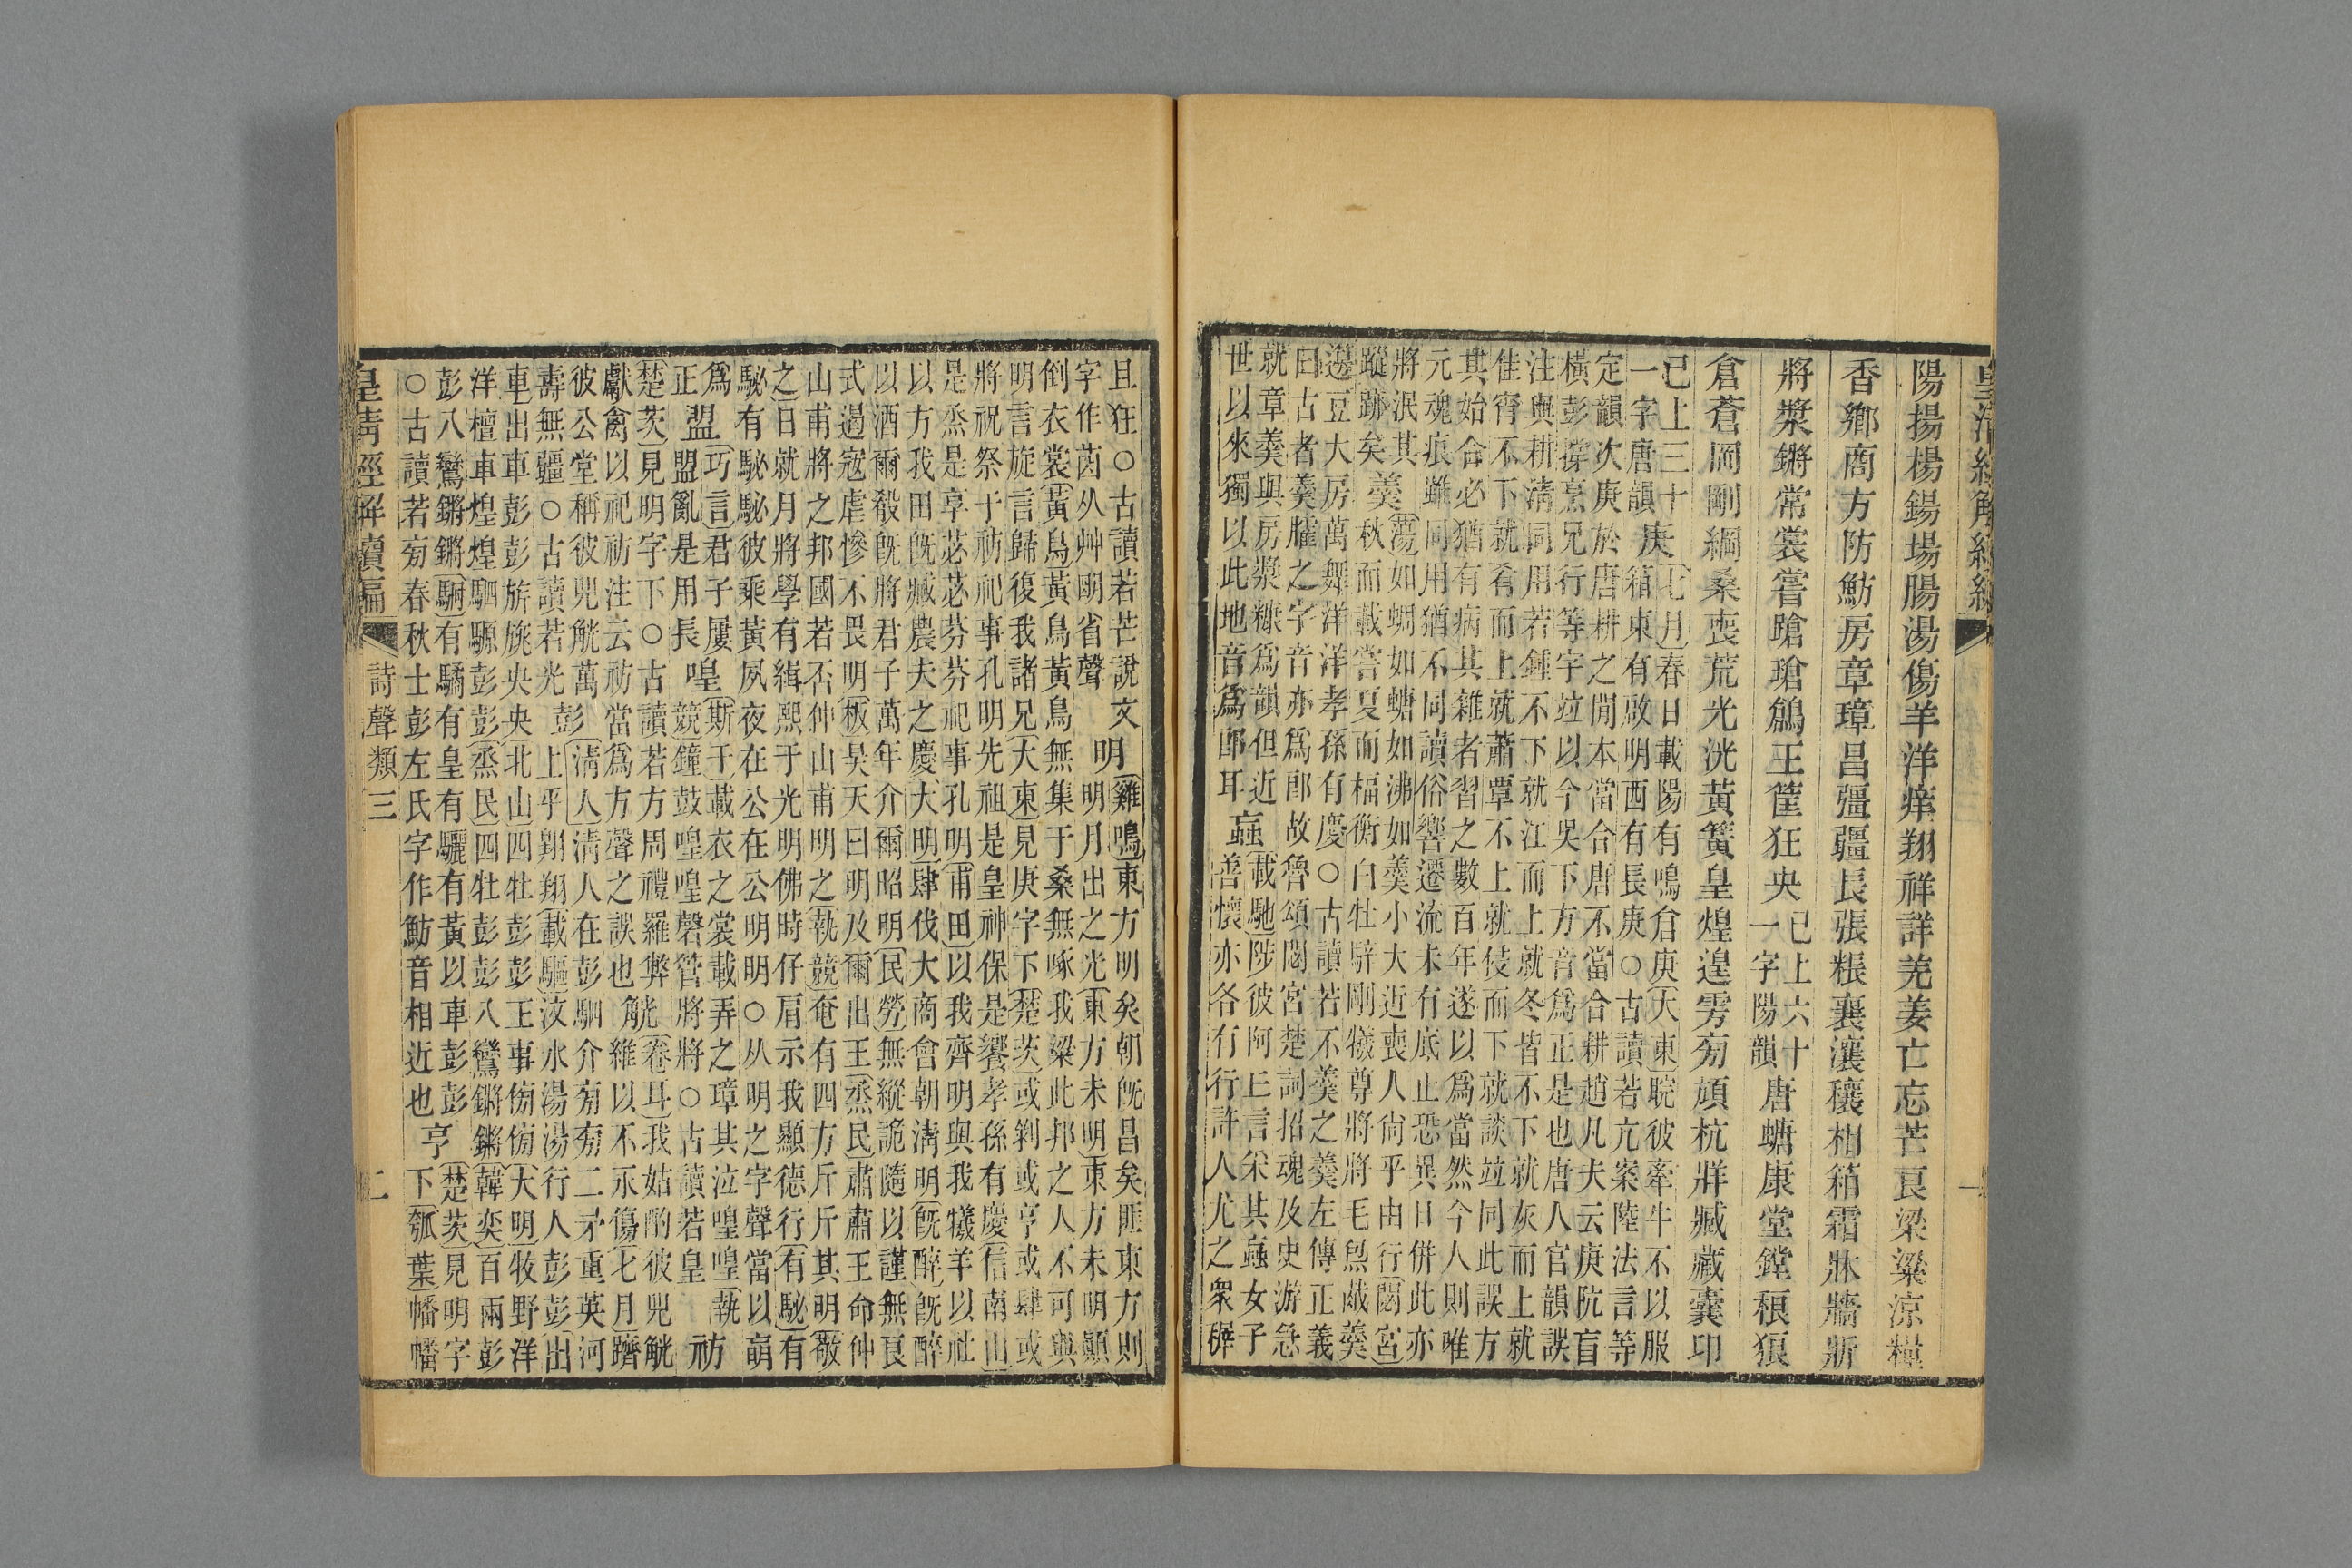 皇清經解續編 一
陽揚楊鍚場腸湯傷羊洋痒翔祥詳羌姜亡忘芒良梁粱涼糧
香鄉商方防魴房章璋昌彊疆長張粻襄瀼穰相箱霜牀牆斨
將漿鏘常裳嘗蹌瑲鶬王筐狂央 已上六十一字陽韻 唐螗康堂鏜稂狼
倉蒼岡剛綱桑喪荒光洸黃簧皇煌遑雱旁頏杭牂臧藏囊卬
已上三十一字唐韻 庚 七月春日載陽有鳴倉庚大東睆彼牽牛不以服
箱東有啟明西有長庚○古讀若亢案陸法言等
定韻次庚於唐耕之閒本當合唐不當合耕趙凡夫云庚阬盲
橫彭撐烹兄行等字竝以今吳下方音爲正是也唐人官韻誤
注與耕清同用若鍾不下就江而上就冬皆不下就灰而上就
佳宵不下就肴而上就蕭覃不上就侵而下就談竝同此誤方
其始合必猶有病其雜者習之數百年遂以爲當然今人則唯
元魂痕雖同用猶不同讀俗響遷流未有底止恐異日併此亦
將泯其蹤跡矣 羹 蕩如蜩如螗如沸如羹小大近喪人尚乎由行閟宮
秋而載嘗夏而楅衡白牡騂剛犧尊將將毛炰胾羹
籩豆大房萬舞洋洋孝孫有慶○古讀若不羹之羹左傳正義
曰古者羹臛之字音亦爲郎故魯頌閟宮楚詞招魂及史游急
就章羹與房漿糠爲韻但近
世以來獨以此地音爲郎耳 蝱 載馳陟彼阿丘言采其蝱女子
善懷亦各有行許人尤之衆穉
且狂○古讀若芒說文
字作䒳从艸朙省聲 明 雞鳴東方明矣朝旣昌矣匪東方則
明月出之光東方未明東方未明顚
倒衣裳黃鳥黃鳥黃鳥無集于桑無啄我粱此邦之人不可與
明言旋言歸復我諸兄大東見庚字下楚茨或剝或亨或肆或
將祝祭于祊祀事孔明先祖是皇神保是饗孝孫有慶信南山
是烝是享苾苾芬芬祀事孔明甫田以我齊明與我犧羊以社
以方我田旣臧農夫之慶大明肆伐大商會朝淸明旣醉旣醉
以酒爾殽旣將君子萬年介爾昭明民勞無縱詭隨以謹無良
式遏寇虐憯不畏明板昊天曰明及爾出王烝民肅肅王命仲
山甫將之邦國若否仲山甫明之執競奄有四方斤斤其明敬
之日就月將學有緝熙于光明佛時仔肩示我顯德行有駜有
駜有駜駜彼乘黃夙夜在公在公明明○从明之字聲當以萌
爲正 盟 巧言君子屢盟亂是用長 喤 斯干載衣之裳載弄之璋其泣喤喤執
競鐘鼓喤喤磬管將將○古讀若皇 祊
楚茨見明字下○古讀若方周禮羅弊
獻禽以祀祊注云祊當爲方聲之誤也 觥 卷耳我姑酌彼兕觥
維以不永傷七月躋
彼公堂稱彼兕觥萬
壽無疆○古讀若光 彭 淸人淸人在彭駟介旁旁二矛重英河
上乎翱翔載驅汶水湯湯行人彭彭出
車出車彭彭旂旐央央北山四牡彭彭王事傍傍大明牧野洋
洋檀車煌煌駟騵彭彭烝民四牡彭彭八鸞鏘鏘韓奕百兩彭
彭八鸞鏘鏘駉有驈有皇有驪有黃以車彭彭
○古讀若旁春秋士彭左氏字作魴音相近也 亨 楚茨見明字
下瓠葉幡幡
皇清經解續編 詩聲類三 二